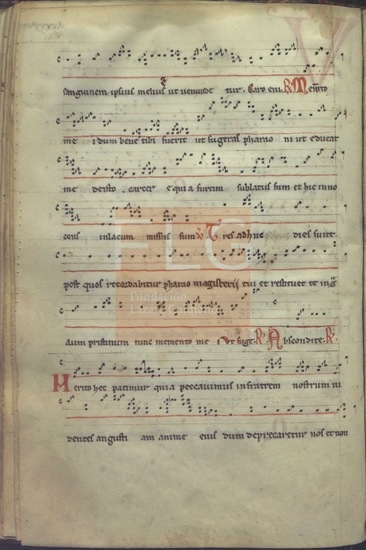 sanguinem ipsius melius ut venunde tur. Caro eni. R Mem̄to
mei dum bene tibi fuerit ut suggeras pharao ni ut educat
me de isto carcere Quia furtim sublatus sum et hic inno
cens in lacum missus sum V Tres adhuc dies sunt
post quos recordabitur pharao magisterii tui et restituet te in g̃
dum pristinum tunc memento mei Ut sugge. R Abscondite. R
Merito hec patimur quia peccavimus in fratrem nostrum vi
dentes angusti am anime eius dum deprecaretur nos et non